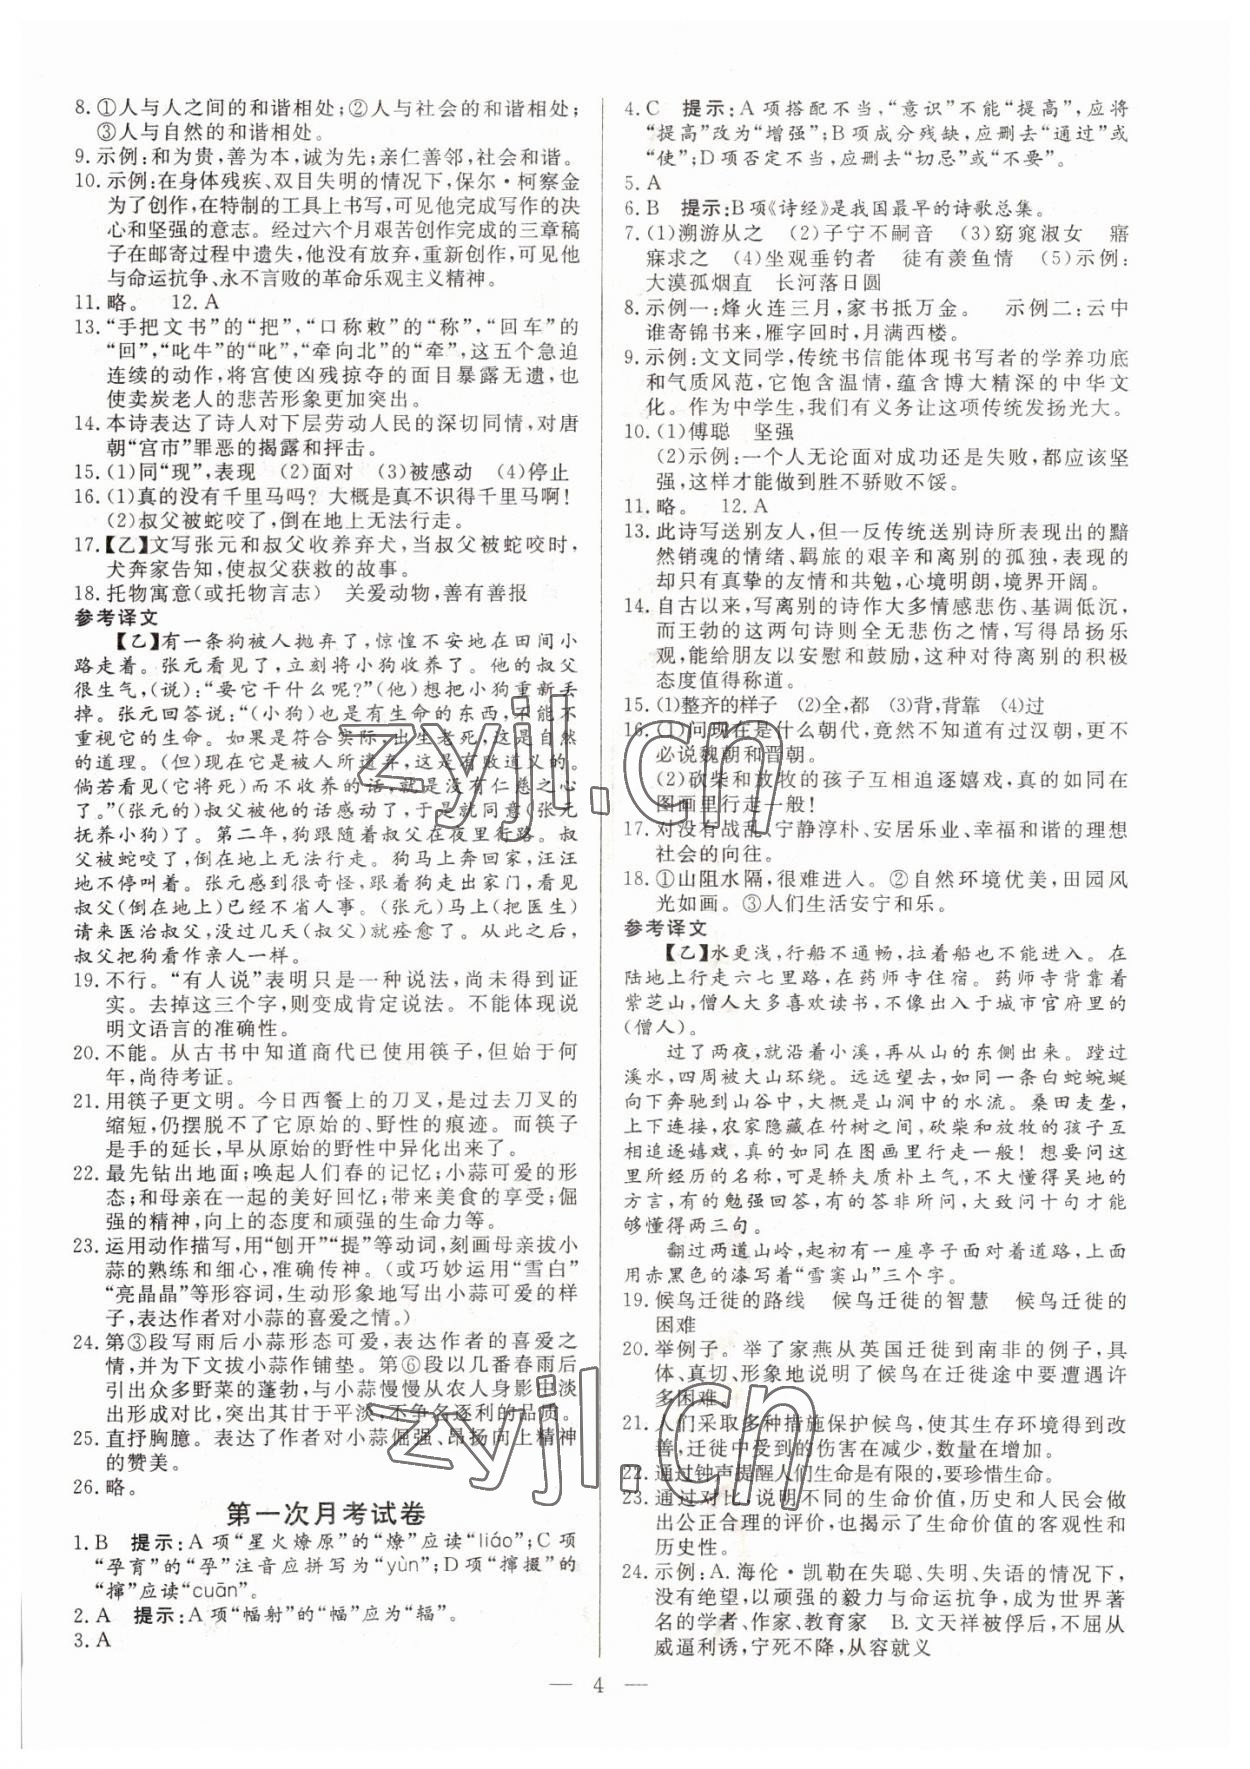 8. ①人与人之间的和谐相处;②人与社会的和谐相处;
③人与自然的和谐相处。
9. 示例:和为贵,善为本,诚为先;亲仁善邻,社会和谐。
10. 示例:在身体残疾、双目失明的情况下,保尔·柯察金
为了创作,在特制的工具上书写,可见他完成写作的决
心和坚强的意志。经过六个月艰苦创作完成的三章稿
子在邮寄过程中遗失,他没有放弃,重新创作,可见他
与命运抗争、永不言败的革命乐观主义精神。
11. 略。 12. A
13. “手把文书”的“把”,“口称敕”的“称”,“回车”的
“回”,“叱牛”的“叱”,“牵向北”的“牵”,这五个急迫
连续的动作,将宫使凶残掠夺的面目暴露无遗,也
使卖炭老人的悲苦形象更加突出。
14. 本诗表达了诗人对下层劳动人民的深切同情,对唐
朝“宫市”罪恶的揭露和抨击。
15. (1)同“现”,表现 (2)面对 (3)被感动 (4)停止
16. (1)真的没有千里马吗? 大概是真不识得千里马啊!
(2)叔父被蛇咬了,倒在地上无法行走。
17. 【乙】文写张元和叔父收养弃犬,当叔父被蛇咬时,
犬奔家告知,使叔父获救的故事。
18. 托物寓意(或托物言志) 关爱动物,善有善报
参考译文
【乙】有一条狗被人抛弃了,惊惶不安地在田间小
路走着。张元看见了,立刻将小狗收养了。他的叔父
很生气,(说):“要它干什么呢?”(他)想把小狗重新丢
掉。张元回答说:“(小狗)也是有生命的东西,不能不
重视它的生命。如果是符合实际,出生老死,这是自然
的道理。(但)现在它是被人所遗弃,这是有败道义的。
倘若看见(它将死)而不收养的话,就是没有仁慈之心
了。”(张元的)叔父被他的话感动了,于是就同意(张元
抚养小狗)了。第二年,狗跟随着叔父在夜里行路。叔
父被蛇咬了,倒在地上无法行走。狗马上奔回家,汪汪
地不停叫着。张元感到很奇怪,跟着狗走出家门,看见
叔父(倒在地上)已经不省人事。(张元)马上(把医生)
请来医治叔父,没过几天(叔父)就痊愈了。从此之后,
叔父把狗看作亲人一样。
19. 不行。“有人说”表明只是一种说法,尚未得到证
实。去掉这三个字,则变成肯定说法。不能体现说
明文语言的准确性。
20. 不能。从古书中知道商代已使用筷子,但始于何
年,尚待考证。
21. 用筷子更文明。今日西餐上的刀叉,是过去刀叉的
缩短,仍摆脱不了它原始的、野性的痕迹。而筷子
是手的延长,早从原始的野性中异化出来了。
22. 最先钻出地面;唤起人们春的记忆;小蒜可爱的形
态;和母亲在一起的美好回忆;带来美食的享受;倔
强的精神,向上的态度和顽强的生命力等。
23. 运用动作描写,用“刨开”“提”等动词,刻画母亲拔小
蒜的熟练和细心,准确传神。(或巧妙运用“雪白”
“亮晶晶”等形容词,生动形象地写出小蒜可爱的样
子,表达作者对小蒜的喜爱之情。)
24. 第③段写雨后小蒜形态可爱,表达作者的喜爱之
情,并为下文拔小蒜作铺垫。第⑥段以几番春雨后
引出众多野菜的蓬勃,与小蒜慢慢从农人身影中淡
出形成对比,突出其甘于平淡,不争名逐利的品质。
25. 直抒胸臆。表达了作者对小蒜倔强、昂扬向上精神
的赞美。
26. 略。
第一次月考试卷
1. B 提示:A 项“星火燎原”的“燎”应读“liáo”;C 项
“孕育”的“孕”注音应拼写为“yùn”;D 项“撺掇”的
“撺”应读“cuān”。
2. A 提示:A 项“幅射”的“幅”应为“辐”。
3. A
4. C 提示:A 项搭配不当,“意识”不能“提高”,应将
“提高”改为“增强”;B 项成分残缺,应删去“通过”或
“使”;D 项否定不当,应删去“切忌”或“不要”。
5. A
6. B 提示:B 项《诗经》是我国最早的诗歌总集。
7. (1)溯游从之 (2)子宁不嗣音 (3)窈窕淑女 寤
寐求之 (4)坐观垂钓者 徒有羡鱼情 (5)示例:
大漠孤烟直 长河落日圆
8. 示例一:烽火连三月,家书抵万金。 示例二:云中
谁寄锦书来,雁字回时,月满西楼。
9. 示例:文文同学,传统书信能体现书写者的学养功底
和气质风范,它饱含温情,蕴含博大精深的中华文
化。作为中学生,我们有义务让这项传统发扬光大。
10. (1)傅聪 坚强
(2)示例:一个人无论面对成功还是失败,都应该坚
强,这样才能做到胜不骄败不馁。
11. 略。 12. A
13. 此诗写送别友人,但一反传统送别诗所表现出的黯
然销魂的情绪、羁旅的艰辛和离别的孤独,表现的
却只有真挚的友情和共勉,心境明朗,境界开阔。
14. 自古以来,写离别的诗作大多情感悲伤、基调低沉,
而王勃的这两句诗则全无悲伤之情,写得昂扬乐
观,能给朋友以安慰和鼓励,这种对待离别的积极
态度值得称道。
15. (1)整齐的样子 (2)全,都 (3)背,背靠 (4)过
16. (1)问现在是什么朝代,竟然不知道有过汉朝,更不
必说魏朝和晋朝。
(2)砍柴和放牧的孩子互相追逐嬉戏,真的如同在
图画里行走一般!
17. 对没有战乱、宁静淳朴、安居乐业、幸福和谐的理想
社会的向往。
18. ①山阻水隔,很难进入。②自然环境优美,田园风
光如画。③人们生活安宁和乐。
参考译文
【乙】水更浅,行船不通畅,拉着船也不能进入。在
陆地上行走六七里路,在药师寺住宿。药师寺背靠着
紫芝山,僧人大多喜欢读书,不像出入于城市官府里的
(僧人)。
过了两夜,就沿着小溪,再从山的东侧出来。蹚过
溪水,四周被大山环绕。远远望去,如同一条白蛇蜿蜒
向下奔驰到山谷中,大概是山涧中的水流。桑田麦垄,
上下交接,农家隐藏在竹树之间,砍柴和放牧的孩子互
相追逐嬉戏,真的如同在图画里行走一般! 想要问这
里所经历的名称,可是轿夫质朴土气,不懂得吴地的
方言,有的勉强回答,有的答非所问,大致问十句才能
够懂得两三句。
翻过两道山岭,起初有一座亭子面对着道路,上面
用赤黑色的漆写着“雪窦山”三个字。
19. 候鸟迁徙的路线 候鸟迁徙的智慧 候鸟迁徙的
困难
20. 举例子。举了家燕从英国迁徙到南非的例子,具
体、真切、形象地说明了候鸟在迁徙途中要遭遇许
多困难。
21. 人们采取多种措施保护候鸟,使其生存环境得到改
善,迁徙中受到的伤害在减少,数量在增加。
22. 通过钟声提醒人们生命是有限的,要珍惜生命。
23. 通过对比,说明不同的生命价值,历史和人民会做
出公正合理的评价,也揭示了生命价值的客观性和
历史性。
24. 示例:A. 海伦·凯勒在失聪、失明、失语的情况下,
没有绝望,以顽强的毅力与命运抗争,成为世界著
名的学者、作家、教育家 B. 文天祥被俘后,不屈从
威逼利诱,宁死不降,从容就义
— 4 —
zyjl.cn
zyjl.cn